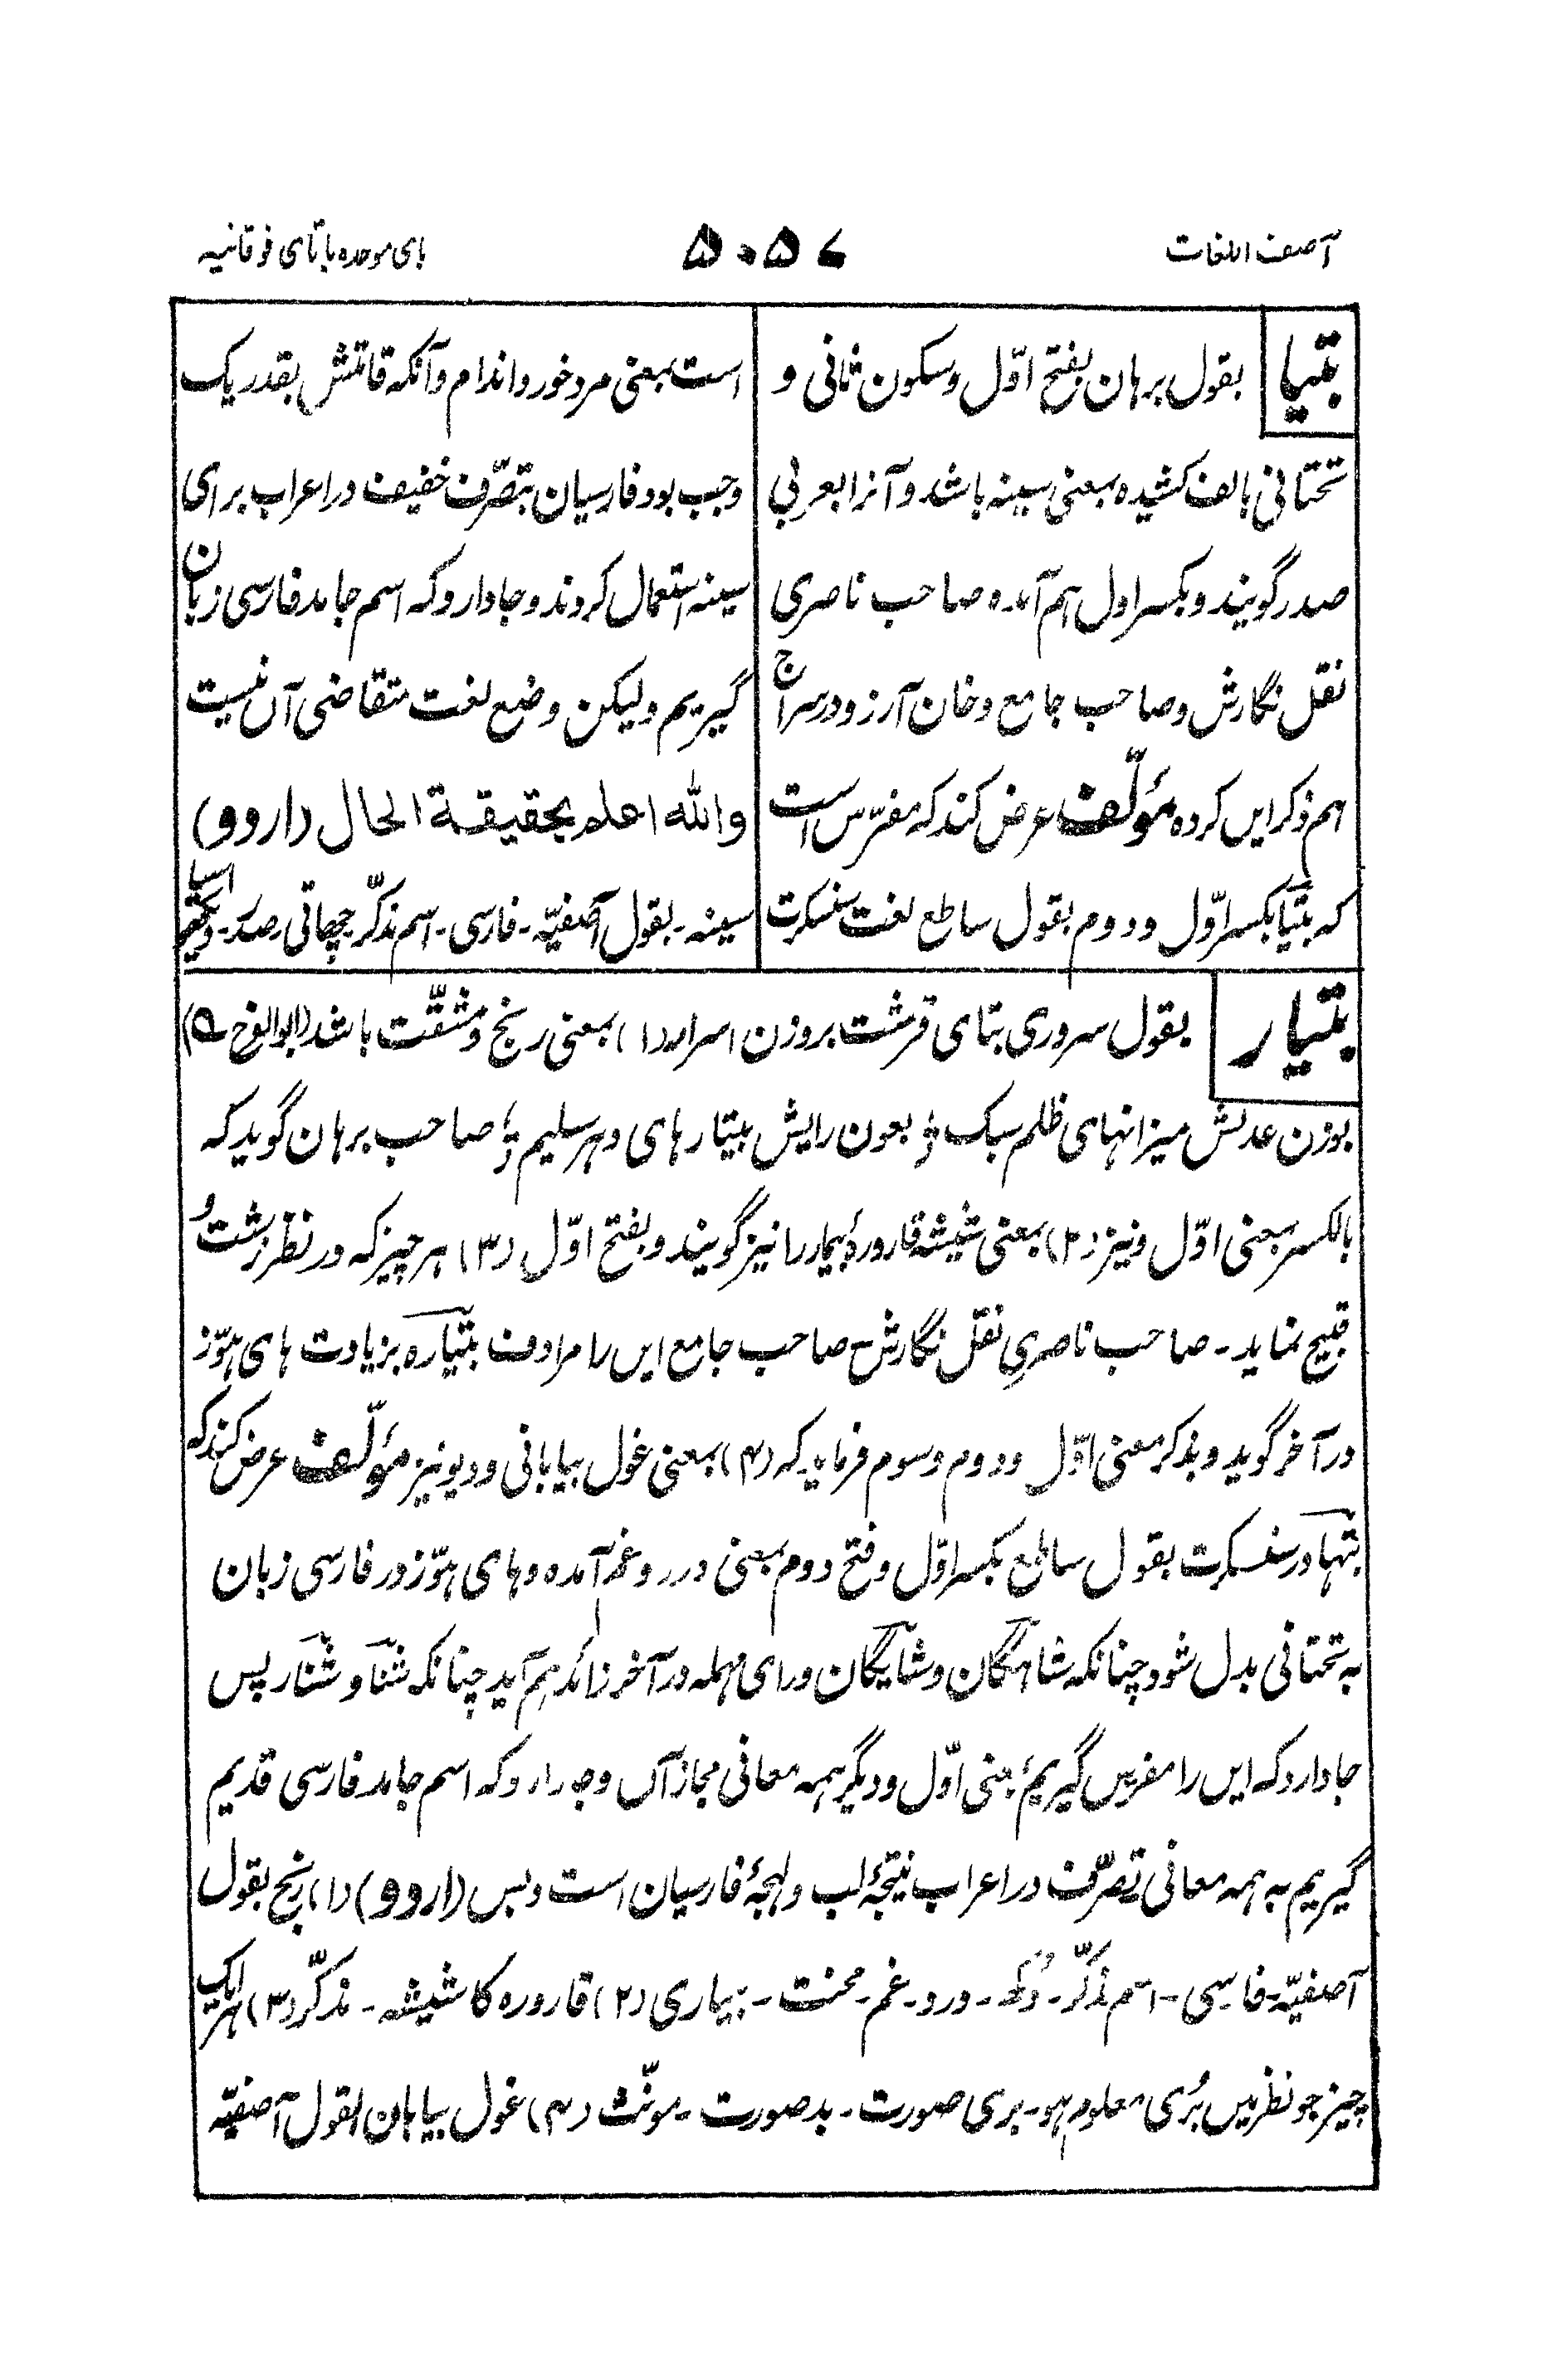 آصف اللغات
۵۰۵۷
بای موحده باتای فوقانیه
بتیا
بقول برہان بفتح اوّل وسکون ثانی و
تحتانی بالف کشیده بمعنی سینہ باشد و آنرا بعربی
صدر گویند و بکسر اول ہم آمده صاحب ناصری
نقل نگارش وصاحب جامع وخان آرزو در سراج
ہم ذکر ایں کرده مؤلّف عرض کند که مفرّس است
که بتیا بکسر اوّل ودوم بقول ساطع لغت سنسکرت
است بمعنی مرد خورد اندام و آنکه قامتش بقدر یک
وجب بود فارسیان بتصّرف خفیف در اعراب برای
سینه استعمال کردند و جا دارد که اسم جامد فارسی زبان
گیریم ولیکن وضع لغت متقاضی آں نیست
والله اعلم بحقیقة الحال (اردو)
سینه ۔ بقول آصفیّه ۔ فارسی ۔ اسم مذکّر چھاتی ۔ صدر ۔
بتیار
بقول سروری بتای قرشت بروزن اسرار (۱) بمعنی رنج و مشقّت باشد (ابوالفرح ــه)
بوزن عدلش میزانهای ظلم سبک ؛ بعون رایش بتیارهای دہر سلیم ؛ صاحب برہان گوید که
بالکسر بمعنی اوّل و نیز (۲) بمعنی شیشۂ قارورۂ بیمار را نیز گویند و بفتح اوّل (۳) ہر چیز که در نظر زشت و
قبیح نماید ۔ صاحب ناصری نقل نگارش صاحب جامع ایں را مرادف بتیاره بزیادت های ہوّز
در آخر گوید و بذکر معنی اوّل ودوم وسوم فرماید که (۴) بمعنی غول بیابانی و دیو نیز مؤلّف عرض کند که
بتہا در سنسکرت بقول ساطع بکسر اوّل وفتح دوم بمعنی درد و غم آمده و های ہوّز در فارسی زبان
به تحتانی بدل شود چنانکه شاہگان و شایگان و رای مہمله در آخر زائد ہم آید چنانکه شنا و شنار پس
جا دارد که ایں را مفرّس گیریم بمعنی اوّل و دیگر ہمه معانی مجاز آں و جا دارد که اسم جامد فارسی قدیم
گیریم به ہمه معانی تصرّف در اعراب نتیجۂ لب ولہجۂ فارسیان است وبس (اردو) (۱) رنج بقول
آصفیّہ ۔ فارسی ۔ اسم مذکّر ۔ دُکھ ۔ درد ۔ غم ۔ محنت ۔ بیماری (۲) قارورہ کا شیشہ ۔ مذکّر (۳) ہر ایک
چیز جو نظر میں بُری معلوم ہو ۔ بری صورت ۔ بد صورت ۔ مونّث (۴) غول بیابان بقول آصفیّہ